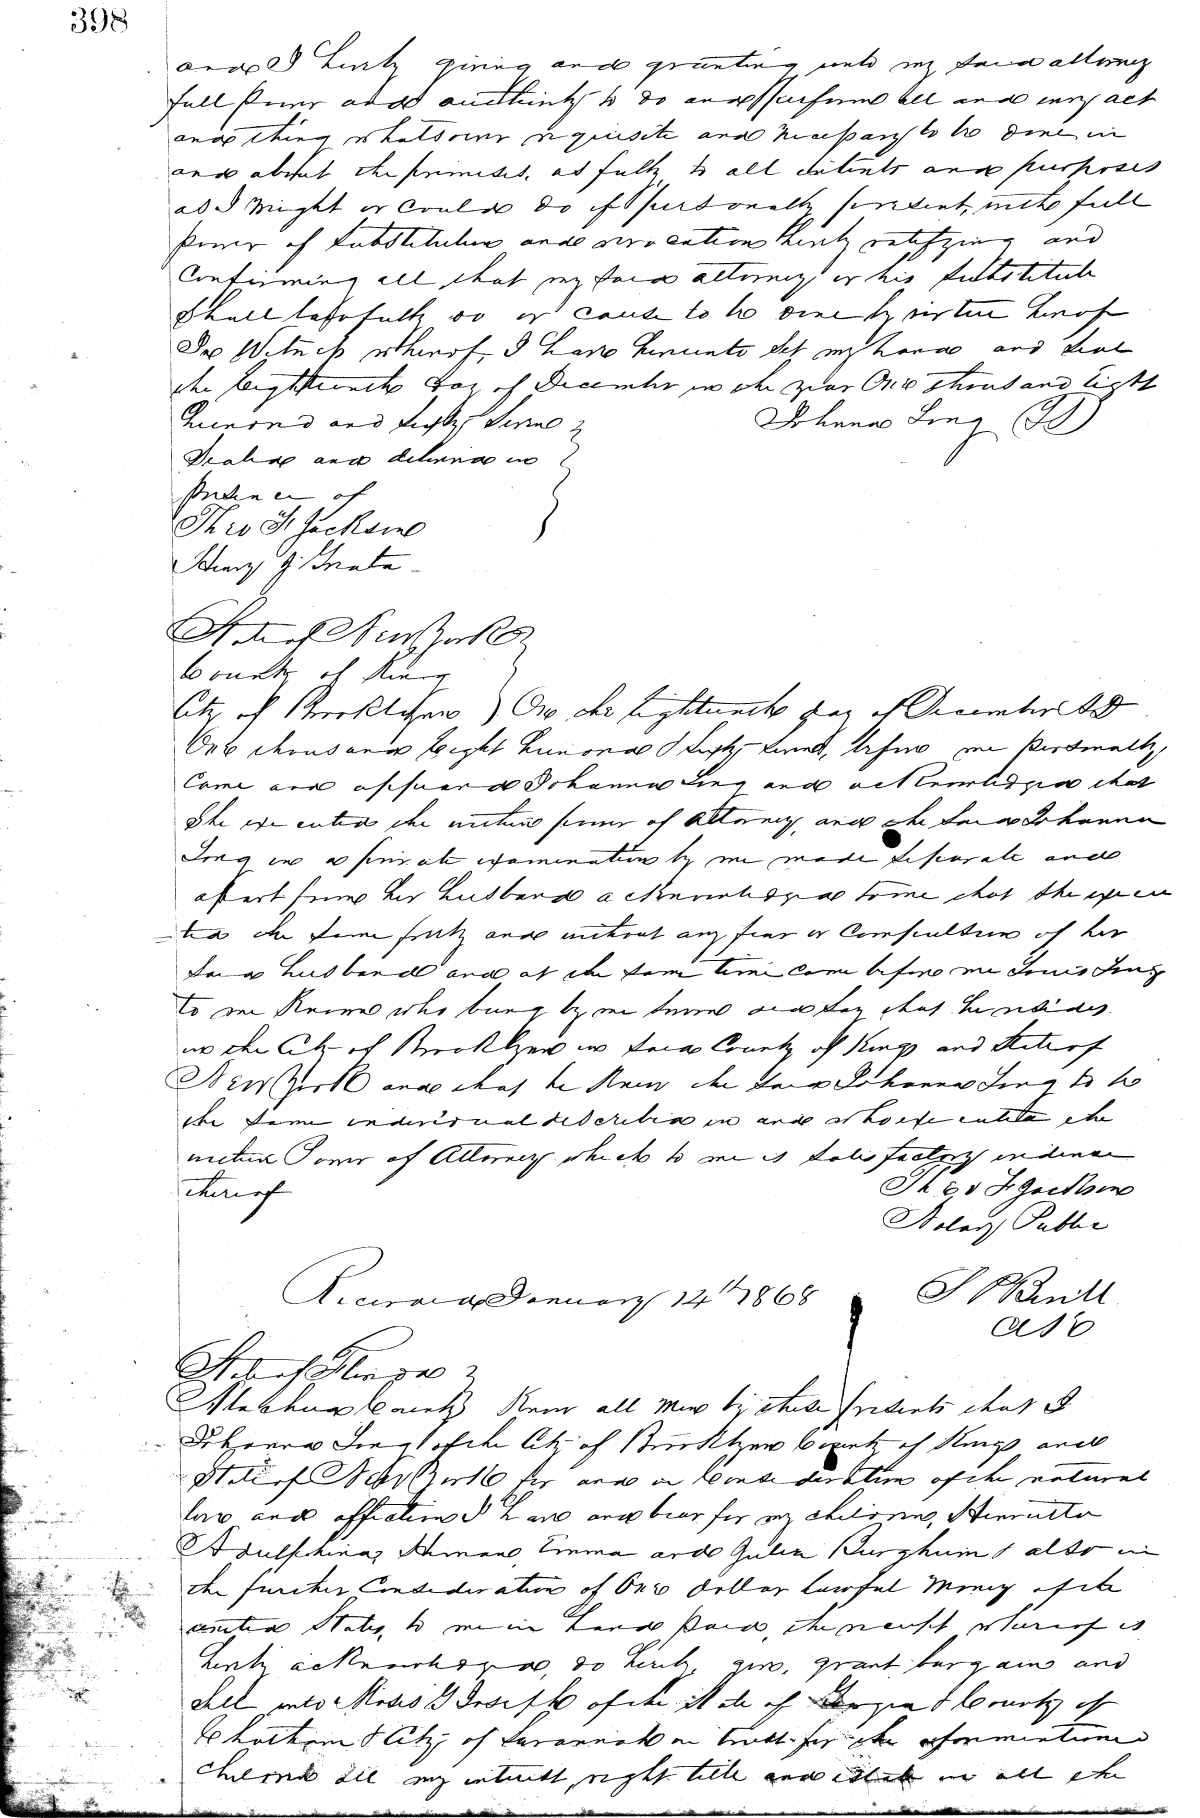 398
and I hereby giving and granting unto my said attorney
full power and authority to do and perform all and every act
and thing whatsoever requisite and necessary to be done in
and about the premises, as fully to all intents and purposes
as I might or could do if personally present, with full
power of substitution and revocation hereby ratifying and
Confirming all that my said attorney or his substitute
shall lawfully do or cause to be done by virtue hereof
In Witness whereof, I have hereunto set my hand and seal
the Eighteenth day of December in the year One thousand Eight
hundred and sixty seven
Johanna Long
Sealed and delivered in
presence of
Theo F Jackson
Henry J.
State of New York
County of King
City of Brooklyn ) On the Eighteenth day of December AD
One thousand Eight hundred & sixty seven, before me personally
Came and appeared Johanna Long and acknowledged that
she executed the within power of Attorney, and the said Johanna
Long in a private examination by me made separate and
apart from her husband acknowledged to me that she execu
ted the same freely and without any fear or Compulsion of her
said husband and at the same time came before me Louis Long
to me Known who being by me sworn did say that he resides
in the City of Brooklyn in said County of Kings and State of
New York and that he Knew the said Johanna Long to be
the same individual described in and who executed the
within Power of Attorney which to me is satisfactory evidence
thereof
Theo F Jackson
Notary Public
Recorded January 14th 1868
State of Florida
Alachua County Know all Men by these presents that I
Johanna Long of the City of Brooklyn County of Kings and
State of New York for and in Consideration of the natural
love and affection I have and bear for my children, Henrietta
Emma and Julia Burgheim & also in
the further Consideration of One dollar lawful Money of the
united States, to me in hand paid, the receipt whereof is
hereby acknowledged, do hereby, give, grant bargain and
sell unto Moses J Joseph of the State of Georgia & County of
Chatham & City of Savannah in trust for the aforementioned
Children all my interest, right title and estate in all the